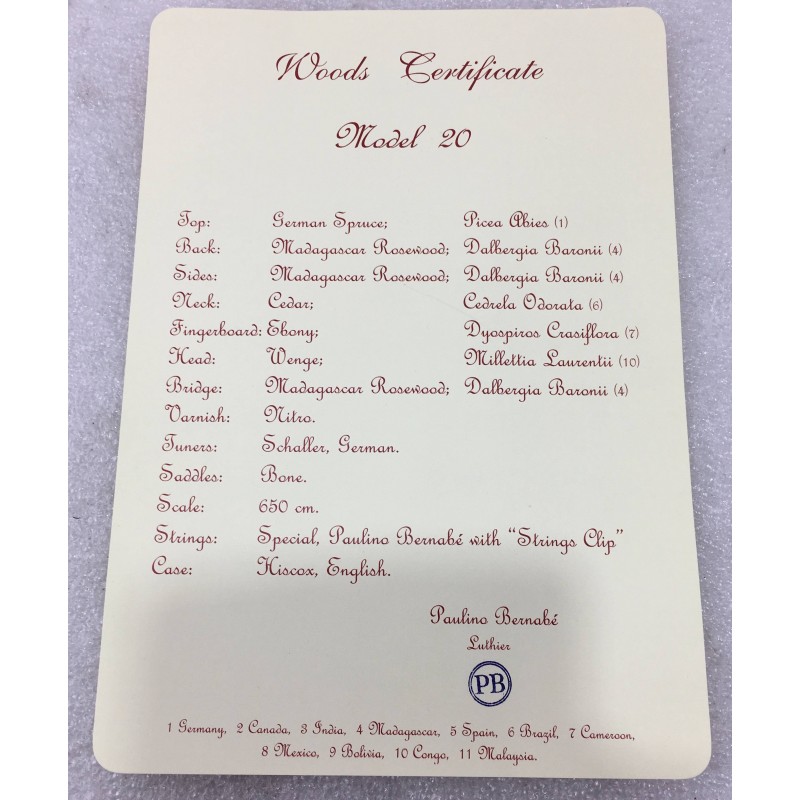 Woods Certificate
Model 20
Top: German Spruce; Picea Abies (1)
Back: Madagascar Rosewood; Dalbergia Baronii (4)
Sides: Madagascar Rosewood; Dalbergia Baronii (4)
Neck: Cedar; Cedrela Odorata (6)
Fingerboard: Ebony; Dyospiros Crasiflora (7)
Head: Wenge; Millettia Laurentii (10)
Bridge: Madagascar Rosewood; Dalbergia Baronii (4)
Varnish: Nitro.
Tuners: Schaller, German.
Saddles: Bone.
Scale: 650 cm.
Strings: Special, Paulino Bernabé with “Strings Clip”
Case: Hiscox, English.
Paulino Bernabé
Luthier
PB
1 Germany, 2 Canada, 3 India, 4 Madagascar, 5 Spain, 6 Brazil, 7 Cameroon,
8 Mexico, 9 Bolivia, 10 Congo, 11 Malaysia.